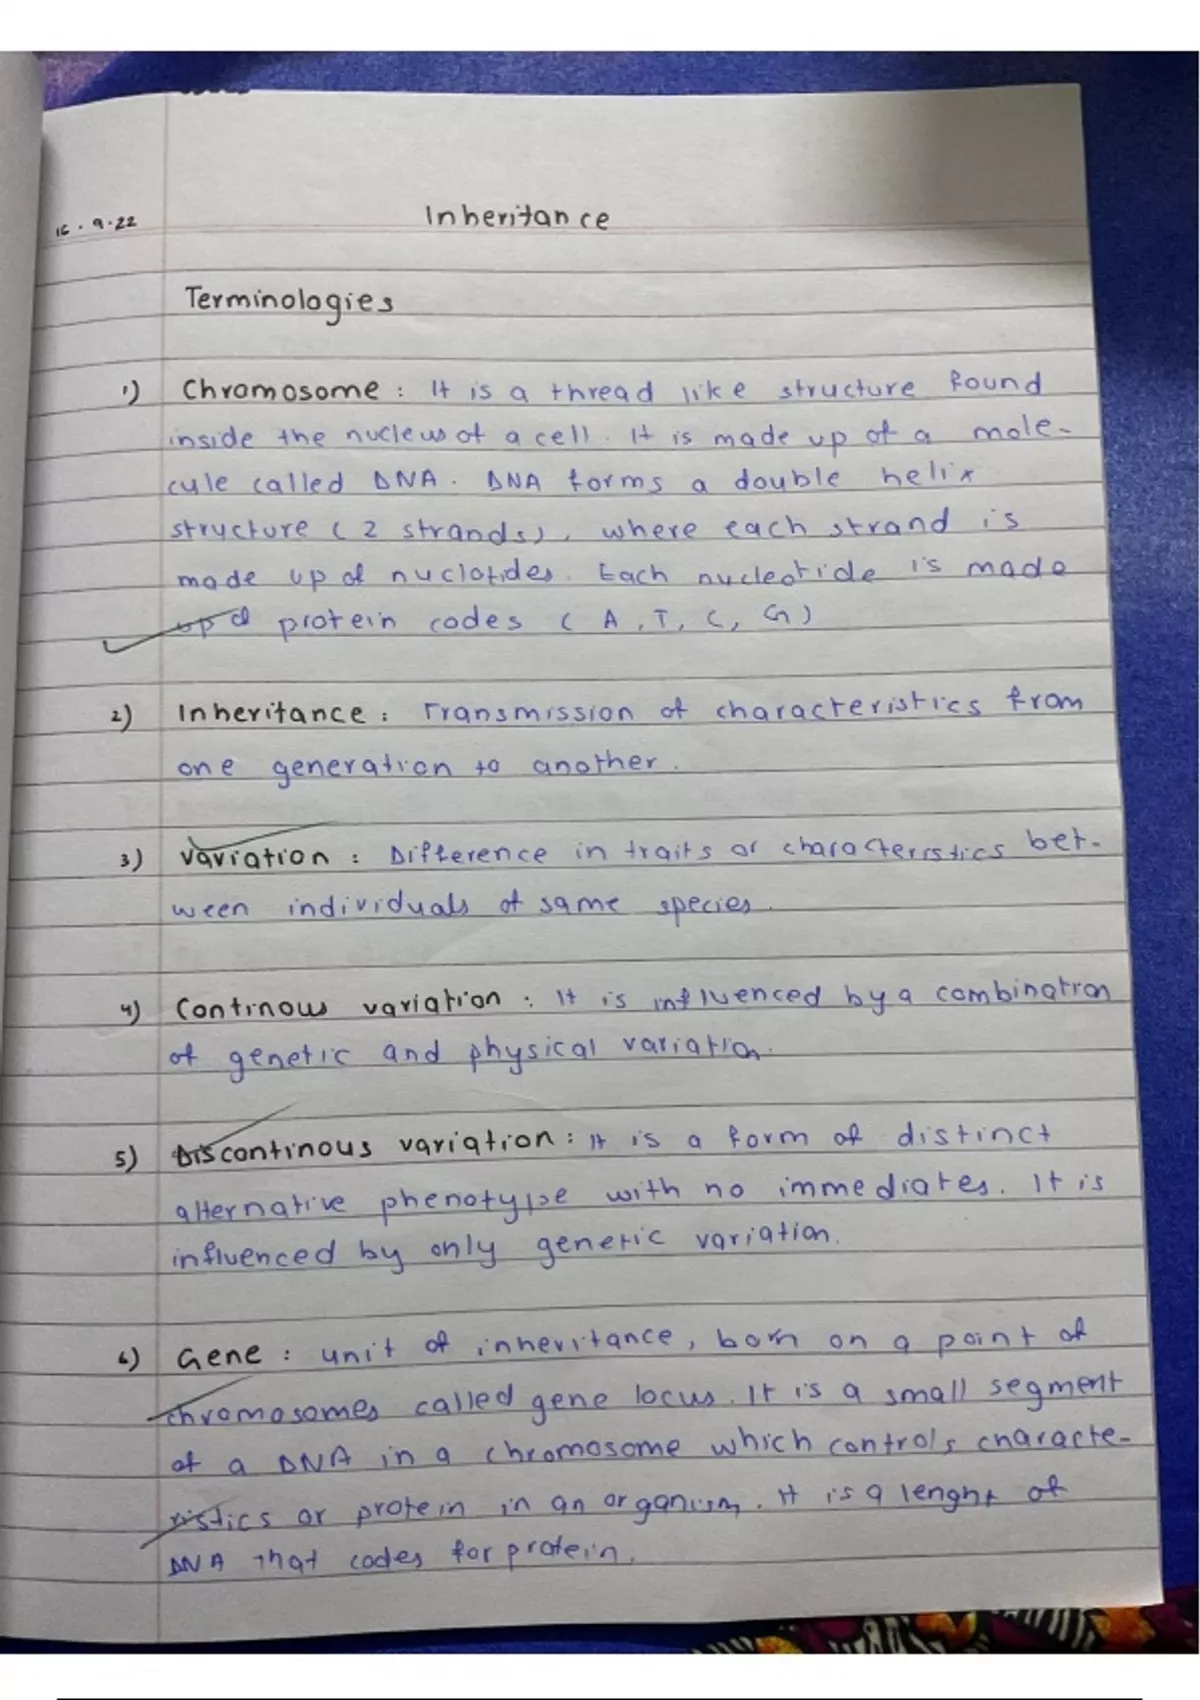 16.9.22
Inheritance
Terminologies
1) Chromosome : It is a thread like structure found
inside the nucleus of a cell. It is made up of a mole-
cule called DNA. DNA forms a double helix
structure (2 strands), where each strand is
made up of nuclotides. Each nucleotide is made
up of protein codes (A, T, C, G)
2) Inheritance : Transmission of characteristics from
one generation to another.
3) Variation : Difference in traits or characteristics bet-
ween individuals of same species.
4) Continous variation : It is influenced by a combination
of genetic and physical variation.
5) Discontinous variation : It is a form of distinct
alternative phenotype with no immediates. It is
influenced by only genetic variation.
6) Gene : unit of inheritance, born on a point of
chromosomes called gene locus. It is a small segment
of a DNA in a chromosome which controls characte-
ristics or protein in an organism. It is a lenght of
DNA that codes for protein.